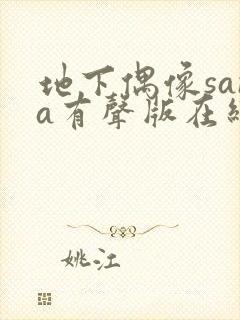 地下偶像sa
a有聲版在
姚江